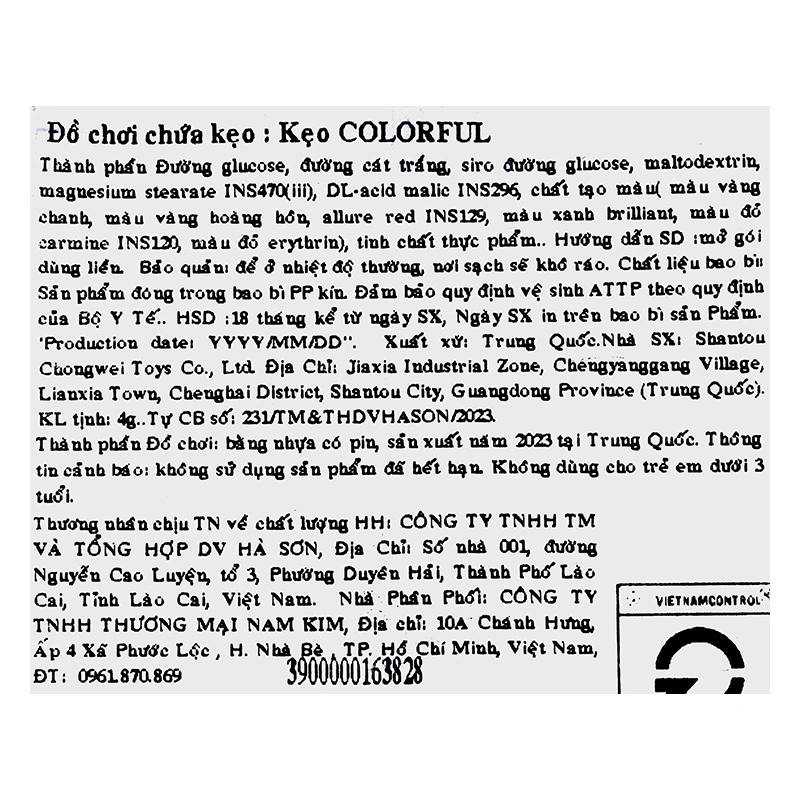 Đồ chơi chứa kẹo : Kẹo COLORFUL
Thành phần Đường glucose, đường cát trắng, siro đường glucose, maltodextrin,
magnesium stearate INS470(iii), DL-acid malic INS296, chất tạo màu( màu vàng
chanh, màu vàng hoàng hôn, allure red INS129, màu xanh brilliant, màu đỏ
carmine INS120, màu đỏ erythrin), tinh chất thực phẩm.. Hướng dẫn SD :mở gói
dùng liền. Bảo quản: để ở nhiệt độ thường, nơi sạch sẽ khô ráo. Chất liệu bao bì:
Sản phẩm đóng trong bao bì PP kín. Đảm bảo quy định vệ sinh ATTP theo quy định
của Bộ Y Tế.. HSD :18 tháng kể từ ngày SX, Ngày SX in trên bao bì sản Phẩm.
"Production date: YYYY/MM/DD". Xuất xứ: Trung Quốc.Nhà SX: Shantou
Chongwei Toys Co., Ltd. Địa Chỉ: Jiaxia Industrial Zone, Chengyanggang Village,
Lianxia Town, Chenghai District, Shantou City, Guangdong Province (Trung Quốc).
KL tịnh: 4g..Tự CB số: 231/TM&THDVHASON/2023.
Thành phần Đồ chơi: bằng nhựa có pin, sản xuất năm 2023 tại Trung Quốc. Thông
tin cảnh báo: không sử dụng sản phẩm đã hết hạn. Không dùng cho trẻ em dưới 3
tuổi.
Thương nhân chịu TN về chất lượng HH: CÔNG TY TNHH TM
VÀ TỔNG HỢP DV HÀ SƠN, Địa Chỉ: Số nhà 001, đường
Nguyễn Cao Luyện, tổ 3, Phường Duyên Hải, Thành Phố Lào
Cai, Tỉnh Lào Cai, Việt Nam. Nhà Phân Phối: CÔNG TY
TNHH THƯƠNG MẠI NAM KIM, Địa chỉ: 10A Chánh Hưng,
Ấp 4 Xã Phước Lộc , H. Nhà Bè , TP. Hồ Chí Minh, Việt Nam,
ĐT: 0961.870.869
3900000163828
VIETNAMCONTROL